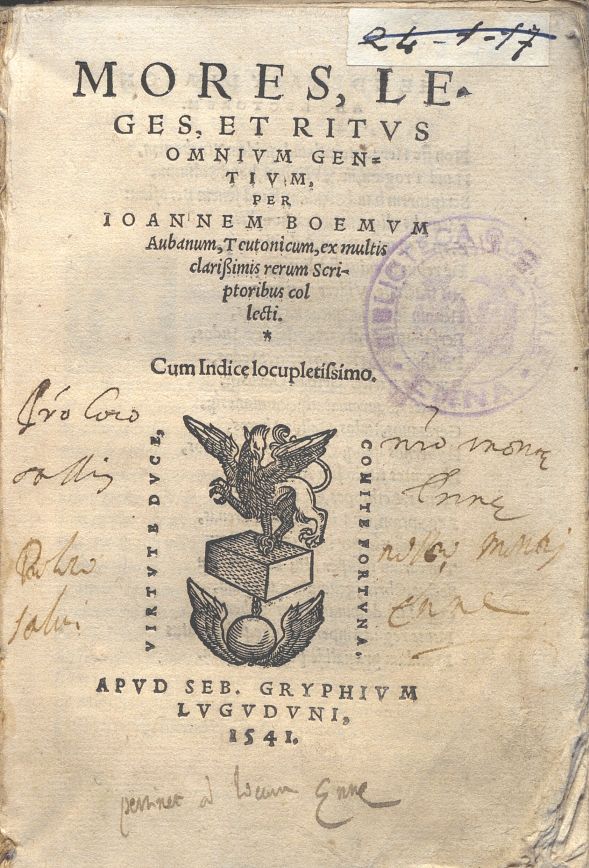 24-1-17
MORES, LE-
GES, ET RITVS
OMNIVM GEN=
TIVM,
PER
IOANNEM BOEMVM
Aubanum, Teutonicum, ex multis
clarißimis rerum Scri-
ptoribus col
lecti.
*
Cum Indice locupletißimo.
BIBLIOTECA
ENNA
VIRTVTE DVCE,
COMITE FORTVNA,
Pro
Enne
Enne
APVD SEB. GRYPHIVM
LVGVDVNI,
1541.
pertinet ad locum Enne